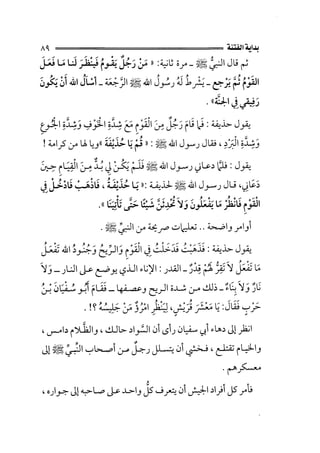 بداية الفتنة ٨٩
ثم قال النبيُّ ﷺ - مرة ثانية: «مَنْ رَجُلٌ يَقُومُ فَيَنْظُرَ لَنَا مَا فَعَلَ
القَوْمُ ثُمَّ يَرْجع - يَشْرطُ لَهُ رسُولُ الله ﷺ الرَّجْعَة - أسْألُ الله أنْ يَكُونَ
رَفِيقي في الجَنَّة».
يقول حذيفة : فَمَا قَامَ رَجُلٌ مِنَ الْقَوْمِ مَعَ شِدَّةِ الْخَوْفِ وَشِدَّةِ الْجُوعِ
وَشِدَّةِ الْبَرْدِ ، فقال رسول الله ﷺ : « قُمْ يَا حُذَيْفَةَ » ويا لها من كرامة !
يقول : فلمَّا دعـاني رسول الله ﷺ فَلَـمْ يَكُـنْ لِي بُـدٌّ مِـنَ الْقِيَـامِ حِـينَ
دَعَانِي ، قـال رسـول الله ﷺ لحذيفـة : « يَـا حُذَيْفَـةُ ، فَاذْهَبْ فَادْخُـلْ فِي
الْقَوْمِ فَانْظُرْ مَا يَفْعَلُونَ وَلَا تُحْدِثَنَّ شَيْئًا حَتَّى تَأْتِيَنَا ».
أوامر واضحة .. تعليمات صريحة من النبي ﷺ .
يقول حذيفة : فَذَهَبْتُ فَدَخَلْتُ فِي الْقَوْمِ وَالرِّيحُ وَجُنُودُ الله تَفْعَلُ
مَا تَفْعَلُ لاَ تَقِرُّ لَهُمْ قِدْرٌ - القدر : الإناء الـذي يوضـع عـلى النـار - وَلَا
نَارٌ وَلَا بِنَاءٌ - ذلك مـن شـدة الـريح وعصـفها - فَقَـامَ أَبُـو سُـفْيَانَ بْـنُ
حَرْبٍ فَقَالَ : يَا مَعْشَرَ قُرَيْشٍ ، لِيَنْظُرِ امْرُؤٌ مَنْ جَلِيسُهُ ؟! .
انظر إلى دهاء أبي سفيان رأى أن السَّواد حالـك ، والظَّـلام دامـس ،
والخيـام تقتلـع ، فـخشي أن يتسـلل رجـلٌ مـن أصـحاب النَّبـيِّ ﷺ إلى
معسكرهم .
فأمر كل أفراد الجيش أن يتعرف كلُّ واحـد عـلى صـاحبه إلى جـواره ،